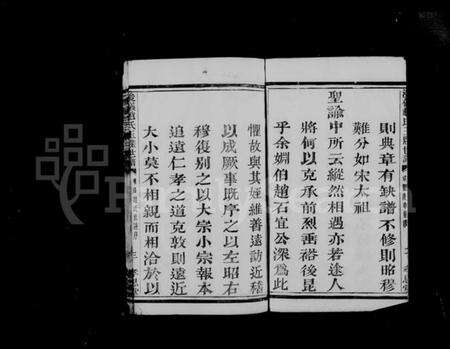 則典章有缺譜不修則昭穆
難分如宋太祖
聖諭中所云縱然相遇亦若途人
將何以克承前烈垂裕後昆
乎余嫺伯趙石宜公深爲此
懼故與其姪維善遠訪近稽
以成厥事既序之以左昭右
穆復别之以大宗小宗報本
追遠仁孝之道克敦則遠近
大小莫不相親而相洽於以